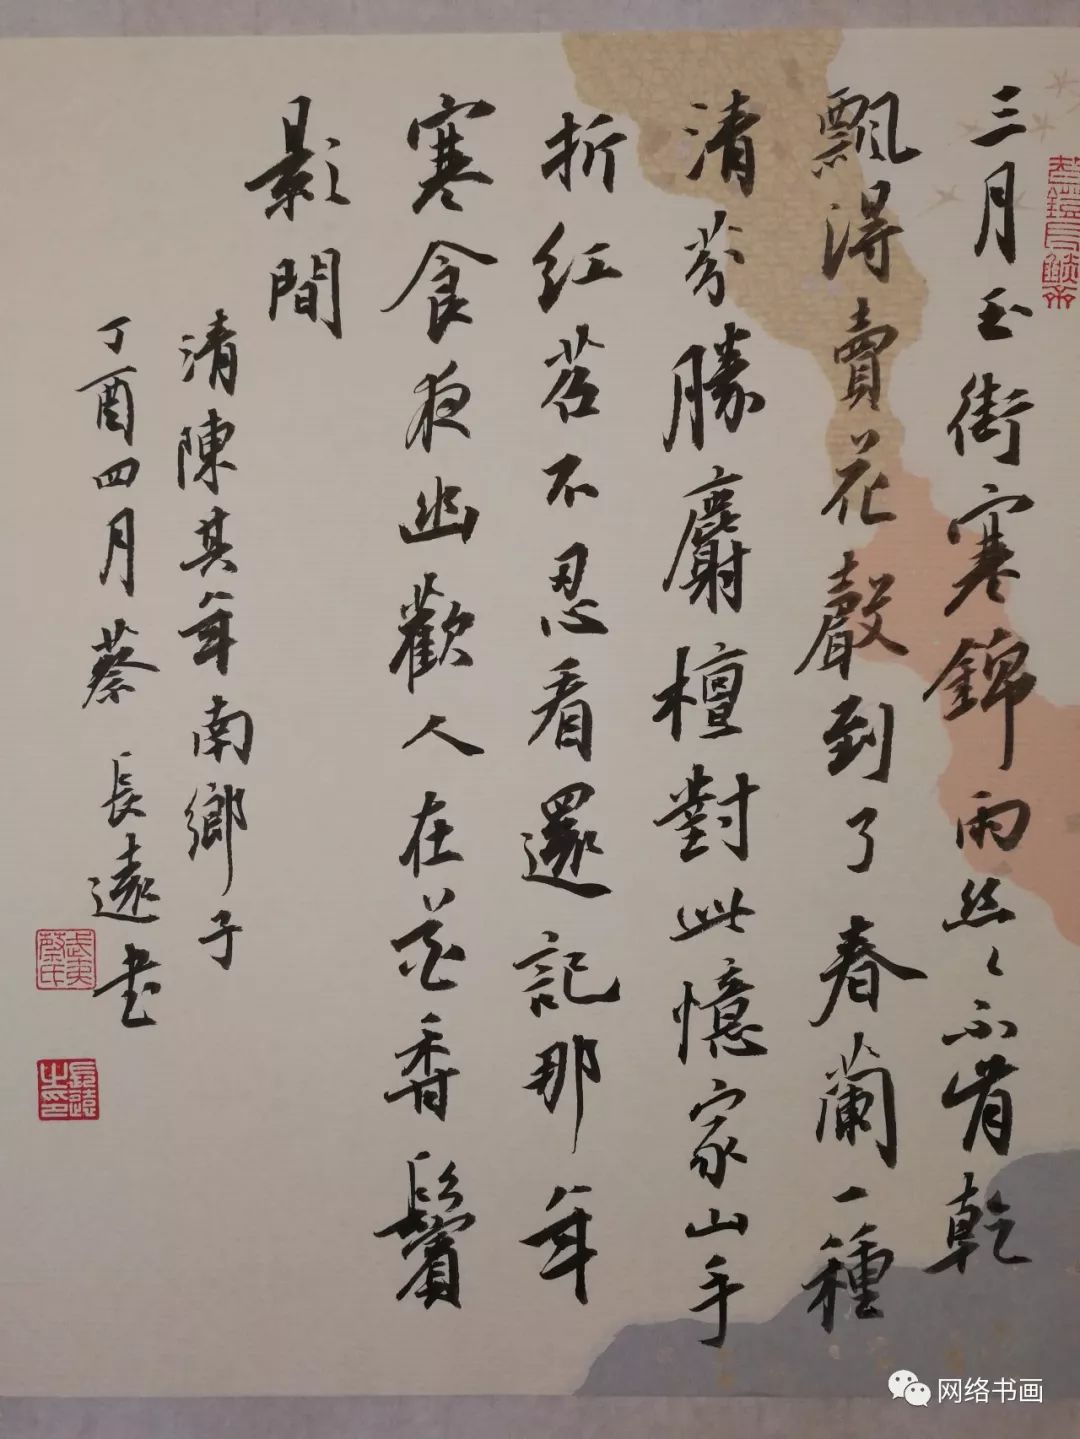 三月玉街寒錦雨丝丝不肯乾
飄得賣花聲到了春蘭一種
清芬勝麝檀對此憶家山手
折红苕不忍看還記那年
寒食夜幽歡人在花香鬢
影間
清陳其年南鄉子
丁酉四月蔡長遠書
武夷蔡氏
長遠之印
网络书画